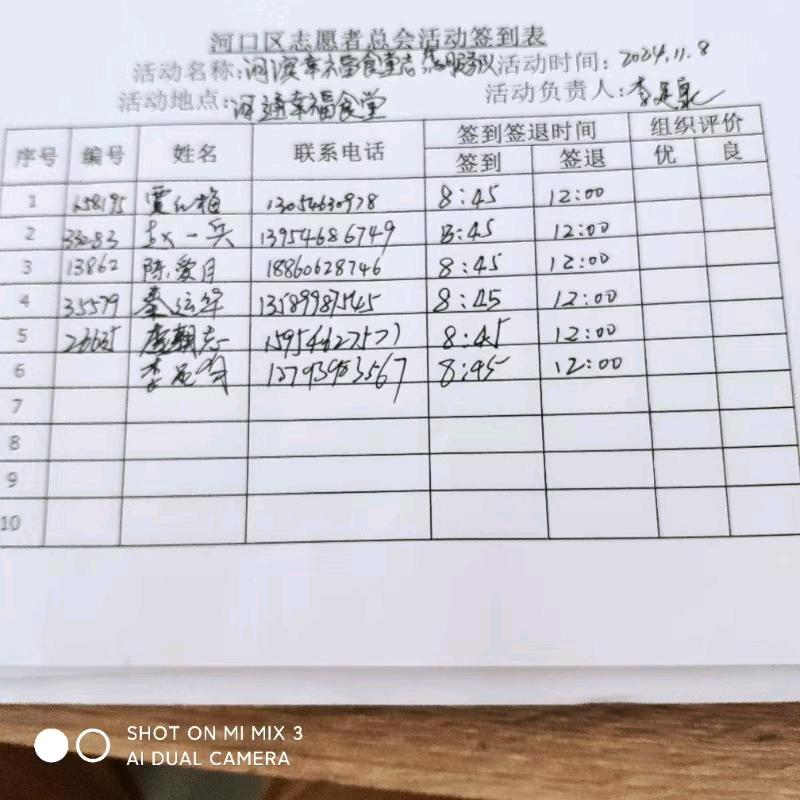 河口区志愿者总会活动签到表
活动名称:河滨幸福食堂志愿服务队 活动时间: 2024.11.8
活动地点: 河滨幸福食堂 活动负责人: 李
序号 编号 姓名 联系电话 签到签退时间 组织评价
签到 签退 优 良
1 贾红梅 13054630978 8:45 12:00
2 33083 赵一兵 13954686749 8:45 12:00
3 13862 陈爱月 18860628746 8:45 12:00
4 35579 秦运华 13589987545 8:45 12:00
5 8:45 12:00
6 李 8:45 12:00
7
8
9
10
SHOT ON MI MIX 3
AI DUAL CAMERA